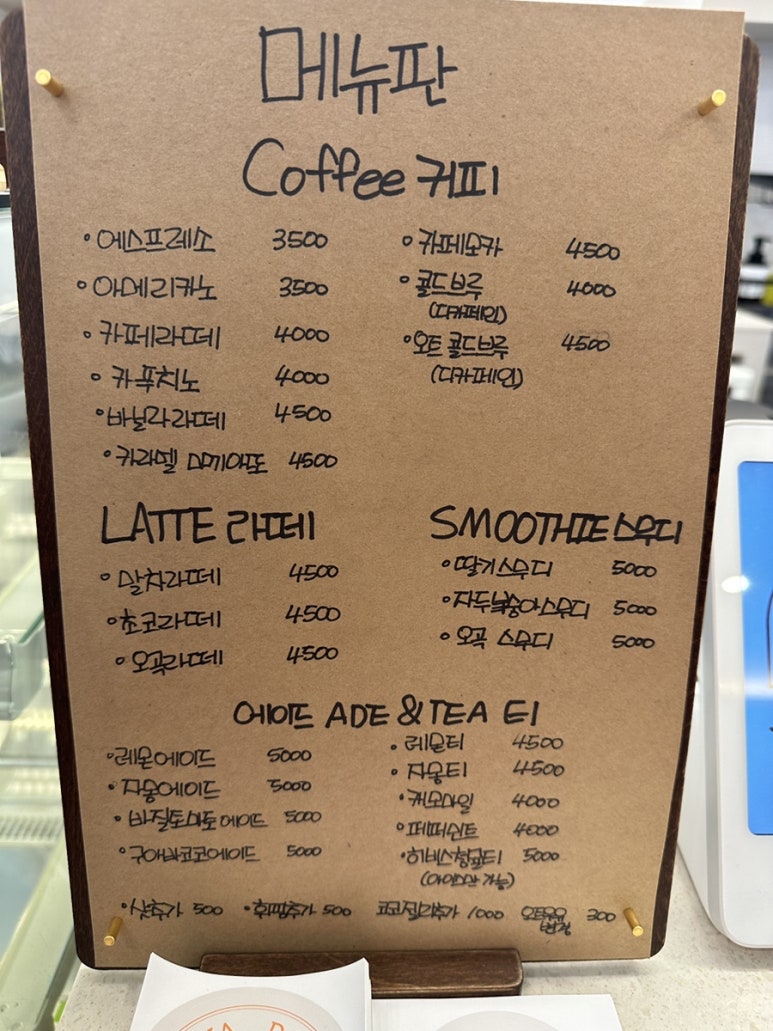 메뉴판
Coffee 커피
•에스프레소 3500
•아메리카노 3500
•카페라떼 4000
•카푸치노 4000
•바닐라라떼 4500
•카라멜 마끼아또 4500
•카페모카 4500
•콜드브루 4000
(디카페인)
•오트콜드브루 4500
(디카페인)
LATTE 라떼
•말차라떼 4500
•초코라떼 4500
•오곡라떼 4500
SMOOTHIE 스무디
•딸기스무디 5000
•자두복숭아스무디 5000
•오곡 스무디 5000
에이드 ADE & TEA 티
•레몬에이드 5000
•자몽에이드 5000
•바질토마토에이드 5000
•구아바코코에이드 5000
•레몬티 4500
•자몽티 4500
•캐모마일 4000
•페퍼민트 4000
•히비스청귤티 5000
(아이스만 가능)
•샷추가 500 •휘핑추가 500 코코젤리추가 1000 오트우유 300
변경